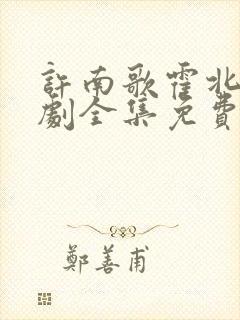 許南歌霍北
劇全集免費
鄭善甫